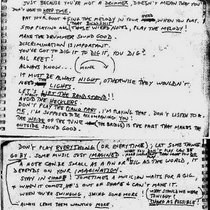 JUST BECAUSE YOU'RE NOT A DRUMMER, DOESN'T MEAN THAT YOU
DON'T HAVE TO KEEP TIME.
PAT YOUR FOOT & SING THE MELODY IN YOUR HEAD, WHEN YOU PLAY.
STOP PLAYING ALL THOSE WEIRD NOTES, PLAY THE MELODY!
MAKE THE DRUMMER SOUND GOOD.
DISCRIMINATION IS IMPORTANT.
YOU'VE GOT TO DIG IT TO DIG IT, YOU DIG?
ALL REET!
ALWAYS KNOW
MONK
IT MUST BE ALWAYS NIGHT, OTHERWISE THEY WOULDN'T
NEED THE LIGHTS.
LET'S LIFT THE BAND STAND!!
AVOID THE HECKLERS.
DON'T PLAY THE PIANO PART, I'M PLAYING THAT. DON'T LISTEN TO ME,
I'M SUPPOSED TO BE ACCOMPANYING YOU!
THE INSIDE OF THE TUNE (THE BRIDGE) IS THE PART THAT MAKES THE
OUTSIDE SOUND GOOD.
DON'T PLAY EVERYTHING (OR EVERYTIME); LET SOME THINGS
GO BY. SOME MUSIC JUST IMAGINED.
A NOTE CAN BE SMALL AS A PIN OR AS BIG AS THE WORLD, IT
DEPENDS ON YOUR IMAGINATION.
STAY IN SHAPE! SOMETIMES A MUSICIAN WAITS FOR A GIG,
& WHEN IT COMES, HE'S OUT OF SHAPE & CAN'T MAKE IT.
WHEN YOU'RE SWINGING, SWING SOME MORE!
SHARP AS POSSIBLE!
ALWAYS LEAVE THEM WANTING MORE.